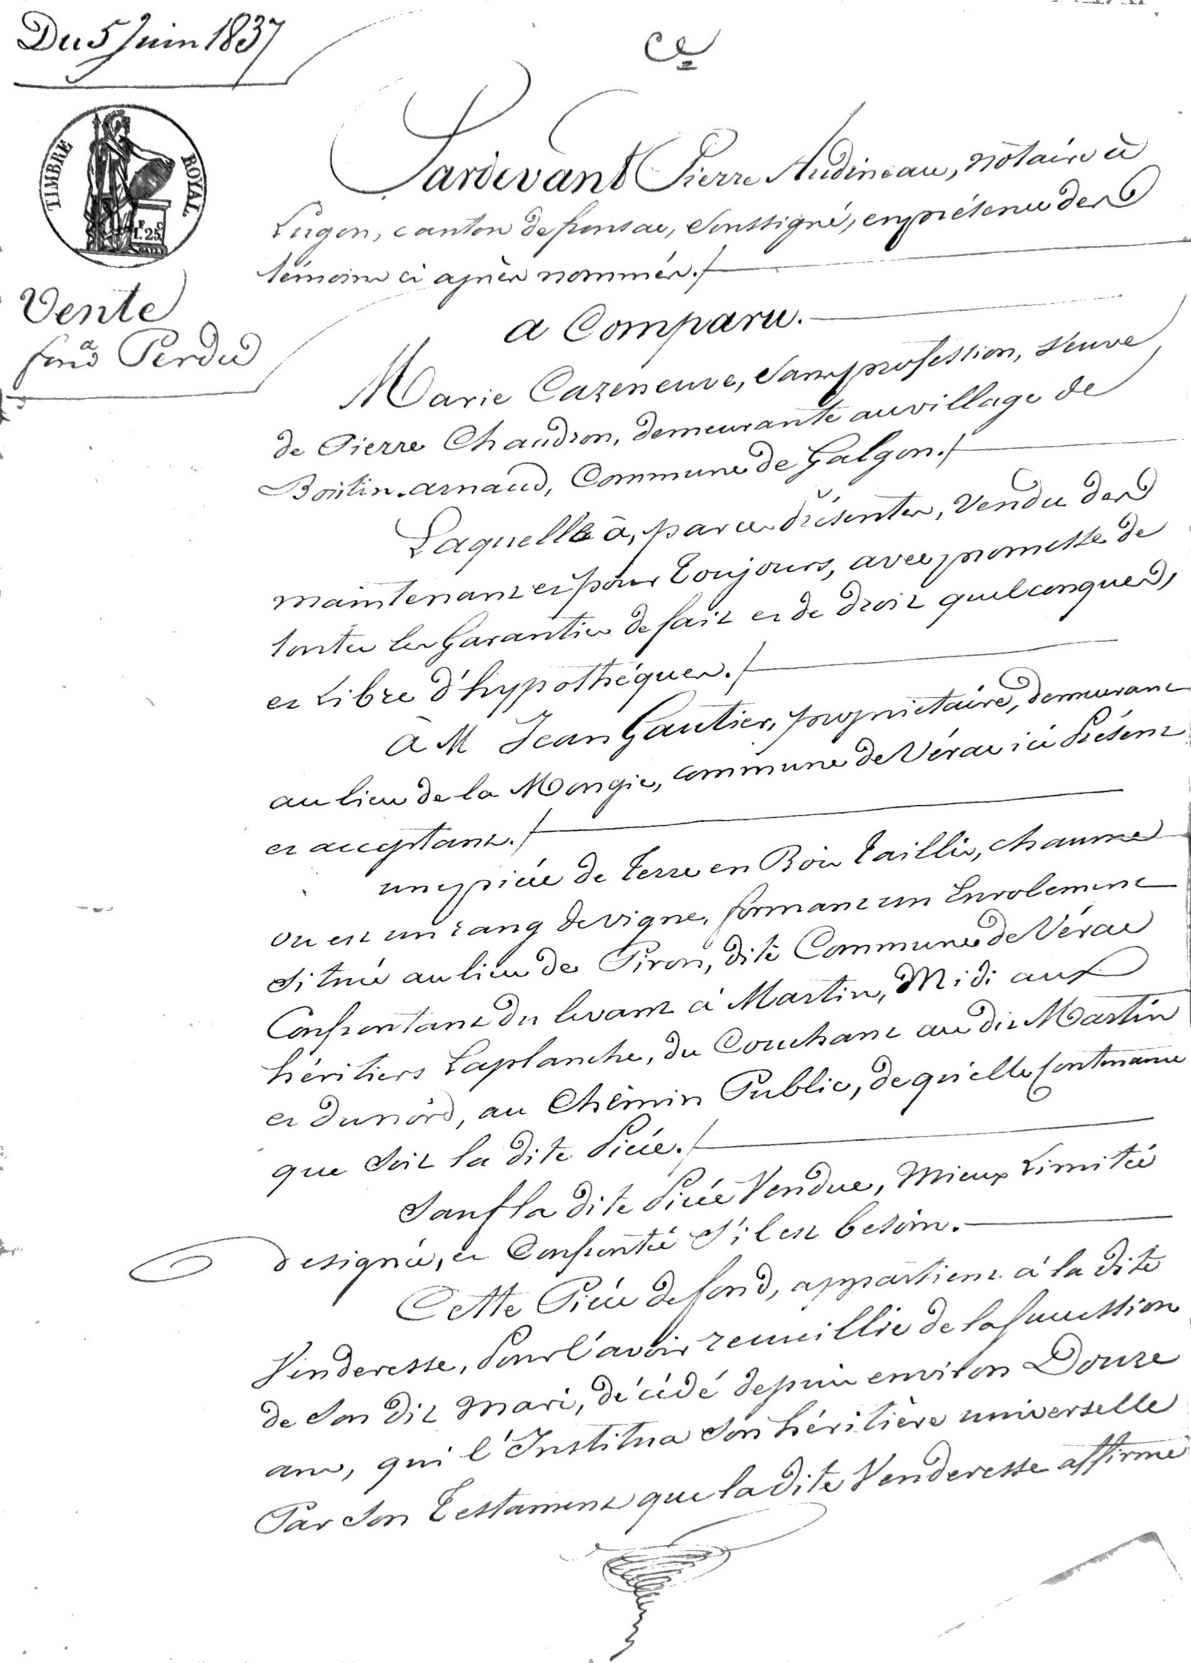 Du 5 Juin 1837
Ce
TIMBRE ROYAL
F. C.
1.25
Vente
à
fond Perdu
Pardevant Pierre Audineau, notaire à
Lugon, canton de fronsac, soussigné, en présence des
témoins ci après nommés./
a Comparu.
Marie Cazeneuve, sans profession, Veuve
de Pierre Chaudron, demeurante au village de
Boutin-arnaud, Commune de Galgon./
Laquelle à, par ces présentes, vendu dès
maintenant et pour toujours, avec promesse de
toutes les Garanties de fait et de droit quelconques,
et Libre d'hyppothéques./
à M Jean Gautier, propriétaire, demeurant
au lieu de la Mongie, commune de Vérac ici Présent
et acceptant./
une pièce de terre en Bois taillis, chaume
ou est un rang de vigne, formant un Enrolement
située au lieu de Piron, dite Commune de Vérac
Confrontant du levant à Martin, Midi aux
héritiers Laplanche, du Couchant au dit Martin
et du nord, au Chemin Public, de qu'elle Contenance
que soit la dite Pièce./
Sauf la dite Pièce Vendue, Mieux Limitée
designée, et Confrontée s'il est besoin.
Cette Pièce de fond, appartient à la dite
Venderesse, Pour l'avoir recueillie de la succession
de son dit mari, décédé depuis environ Douze
ans, qui l'Institua son héritière universelle
Par son Testament que la dite Venderesse affirme